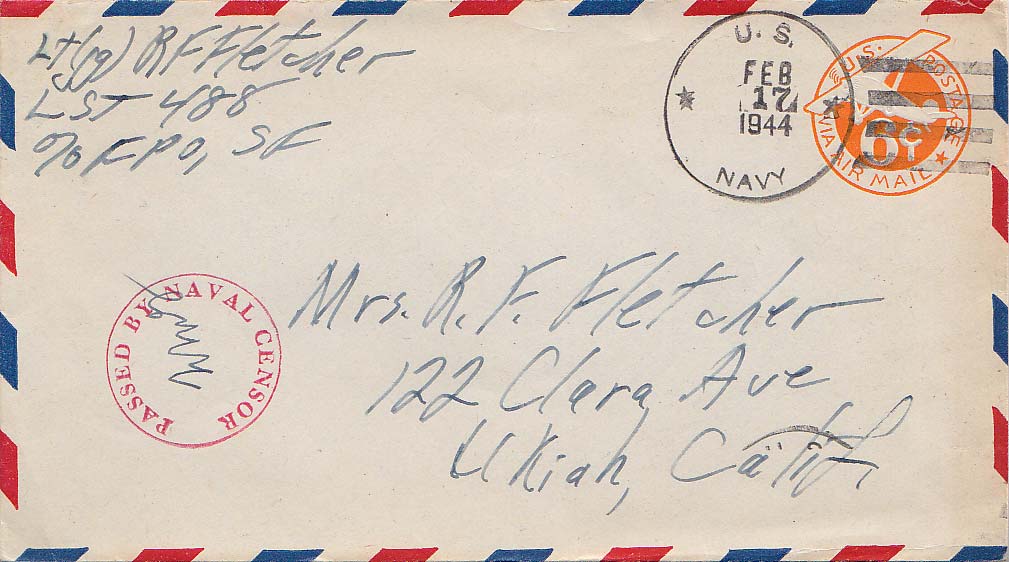 Lt(jg) R F Fletcher
LST 488
c/o FPO, SF
U. S.
FEB
17
1944
NAVY
U.S. POSTAGE
6¢
VIA AIR MAIL
PASSED BY NAVAL CENSOR
Mrs. R. F. Fletcher
122 Clara Ave
Ukiah, Calif.